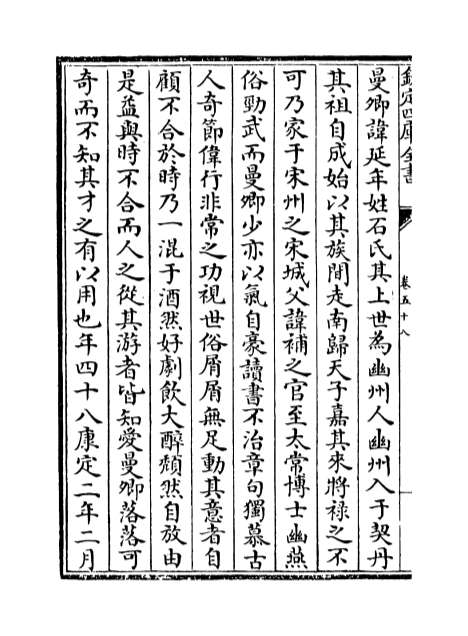 欽定四庫全書
卷五十八
曼卿諱延年姓石氏其上世為幽州人幽州入于契丹
其祖自成始以其族間走南歸天子嘉其來將祿之不
可乃家于宋州之宋城父諱補之官至太常博士幽燕
俗勁武而曼卿少亦以氣自豪讀書不治章句獨慕古
人奇節偉行非常之功視世俗屑屑無足動其意者自
顧不合於時乃一混于酒然好劇飲大醉頹然自放由
是益與時不合而人之從其游者皆知愛曼卿落落可
奇而不知其才之有以用也年四十八康定二年二月